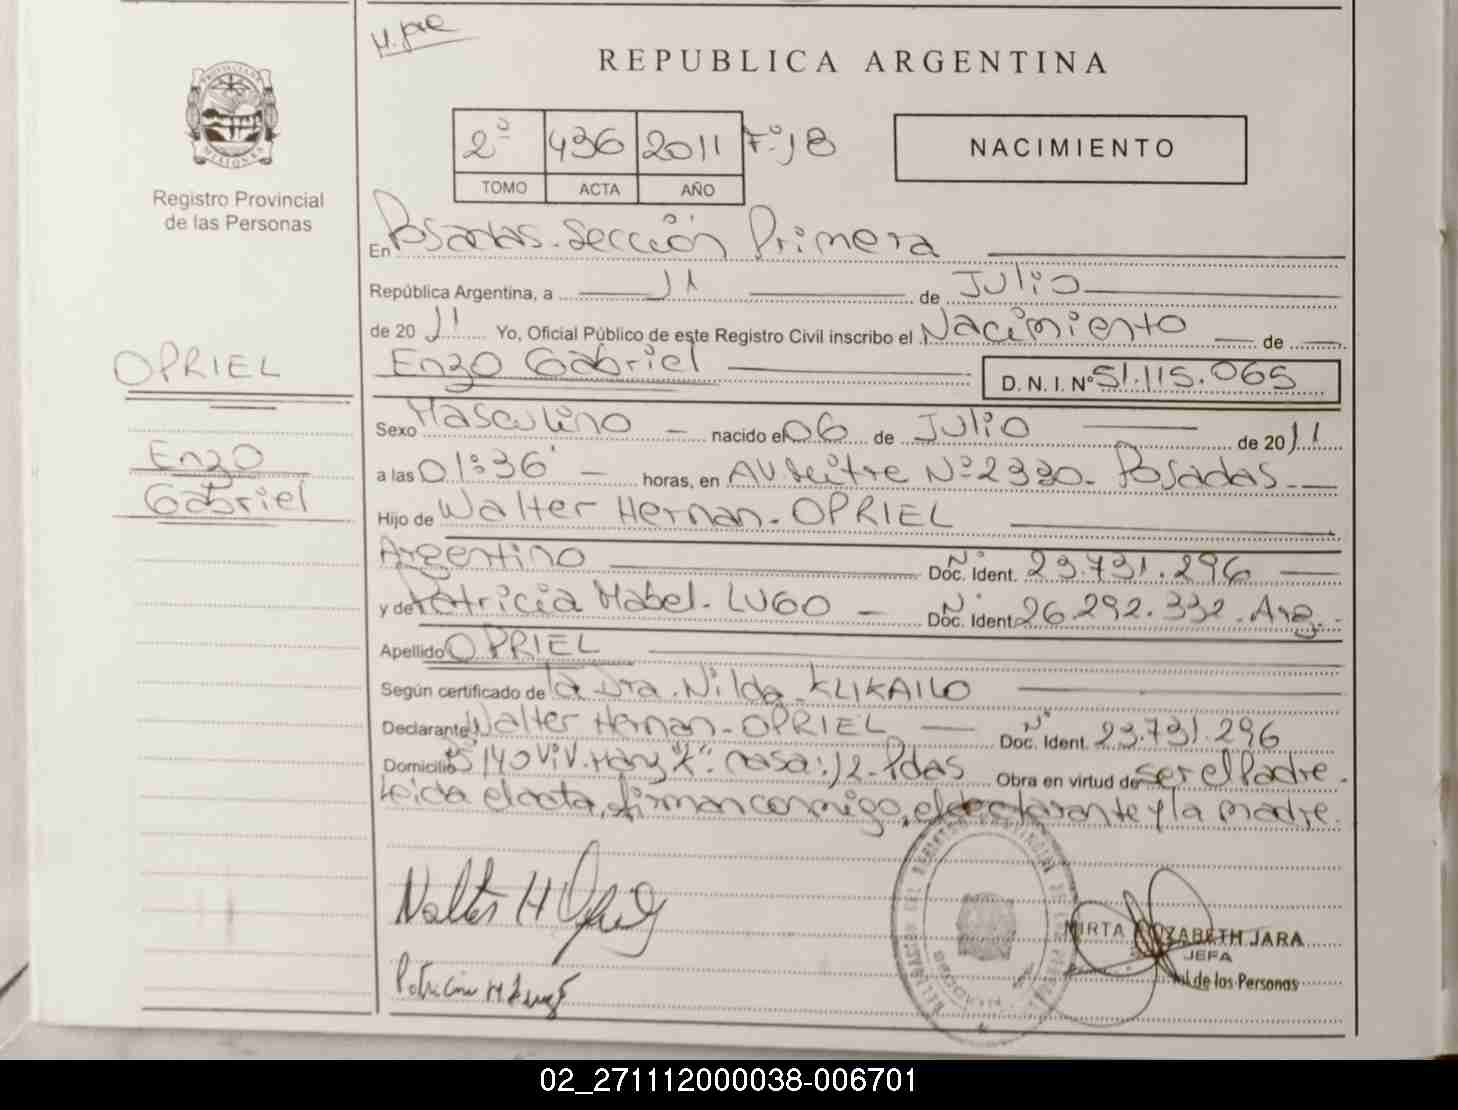 H. Jara
REPUBLICA ARGENTINA
PROVINCIA DE MISIONES
Registro Provincial
de las Personas
2º 436 2011 Fº 18
TOMO ACTA AÑO
NACIMIENTO
En Posadas. Sección Primera
República Argentina, a 11 de Julio
de 2011 Yo, Oficial Público de este Registro Civil inscribo el Nacimiento de
OPRIEL
Enzo Gabriel D. N. I. Nº 51.115.065
Sexo Masculino nacido el 06 de Julio de 2011
Enzo
Gabriel
a las 01:36' horas, en Av Mitre Nº 2330. Posadas.
Hijo de Walter Hernan. OPRIEL
Argentino Nº Doc. Ident. 23.731.296
y de Patricia Mabel. LUGO Nº Doc. Ident. 26.292.332. Arg.
Apellido OPRIEL
Según certificado de la Dra. Nilda KLIKAILO
Declarante Walter Hernan. OPRIEL Nº Doc. Ident. 23.731.296
Domicilio Bº 140 Viv. Casa: 12. Pdas Obra en virtud de ser el Padre.
Leida el acta, firman conmigo, el declarante y la madre.
Walter H Opriel
Patricia M Lugo
MIRTA ELIZABETH JARA
JEFA
de las Personas
02_271112000038-006701